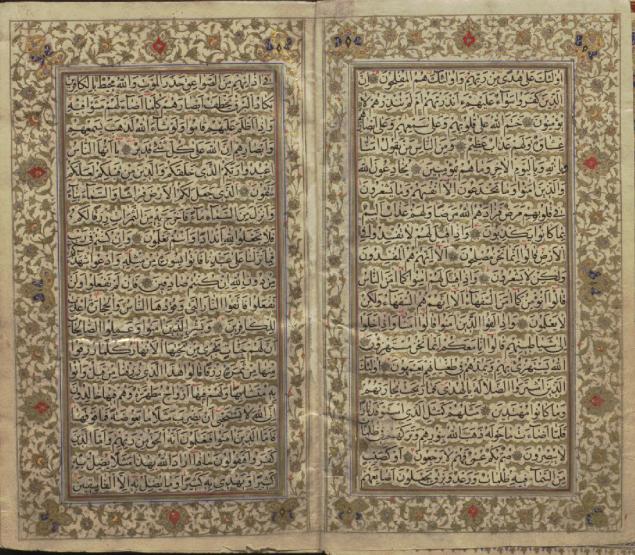 اولئك على هدى من ربهم واولئك هم المفلحون ان
الذين كفروا سواء عليهم ءانذرتهم ام لم تنذرهم لا
يؤمنون ختم الله على قلوبهم وعلى سمعهم وعلى ابصارهم
غشاوة ولهم عذاب عظيم ومن الناس من يقول امنا
بالله وباليوم الاخر وما هم بمؤمنين يخادعون الله
والذين امنوا وما يخدعون الا انفسهم وما يشعرون
في قلوبهم مرض فزادهم الله مرضا ولهم عذاب اليم
بما كانوا يكذبون واذا قيل لهم لا تفسدوا في
الارض قالوا انما نحن مصلحون الا انهم هم المفسدون
ولكن لا يشعرون واذا قيل لهم امنوا كما امن الناس
قالوا انؤمن كما امن السفهاء الا انهم هم السفهاء ولكن
لا يعلمون واذا لقوا الذين امنوا قالوا امنا واذا خلوا
الى شياطينهم قالوا انا معكم انما نحن مستهزؤن
الله يستهزئ بهم ويمدهم في طغيانهم يعمهون اولئك
الذين اشتروا الضلالة بالهدى فما ربحت تجارتهم
وما كانوا مهتدين مثلهم كمثل الذي استوقد نارا
فلما اضاءت ما حوله ذهب الله بنورهم وتركهم في ظلمات
لا يبصرون صم بكم عمي فهم لا يرجعون او كصيب
من السماء فيه ظلمات ورعد وبرق يجعلون اصابعهم
في اذانهم من الصواعق حذر الموت والله محيط بالكافرين
يكاد البرق يخطف ابصارهم كلما اضاء لهم مشوا فيه
واذا اظلم عليهم قاموا ولو شاء الله لذهب بسمعهم
وابصارهم ان الله على كل شيء قدير يا ايها الناس
اعبدوا ربكم الذي خلقكم والذين من قبلكم لعلكم
تتقون الذي جعل لكم الارض فراشا والسماء بناء
وانزل من السماء ماء فاخرج به من الثمرات رزقا لكم
فلا تجعلوا لله اندادا وانتم تعلمون وان كنتم في ريب
مما نزلنا على عبدنا فاتوا بسورة من مثله وادعوا شهداءكم
من دون الله ان كنتم صادقين فان لم تفعلوا ولن
تفعلوا فاتقوا النار التي وقودها الناس والحجارة اعدت
للكافرين وبشر الذين امنوا وعملوا الصالحات
ان لهم جنات تجري من تحتها الانهار كلما رزقوا
منها من ثمرة رزقا قالوا هذا الذي رزقنا من قبل واتوا
به متشابها ولهم فيها ازواج مطهرة وهم فيها خالدون
ان الله لا يستحيي ان يضرب مثلا ما بعوضة فما فوقها
فاما الذين امنوا فيعلمون انه الحق من ربهم واما الذين
كفروا فيقولون ماذا اراد الله بهذا مثلا يضل به
كثيرا ويهدي به كثيرا وما يضل به الا الفاسقين